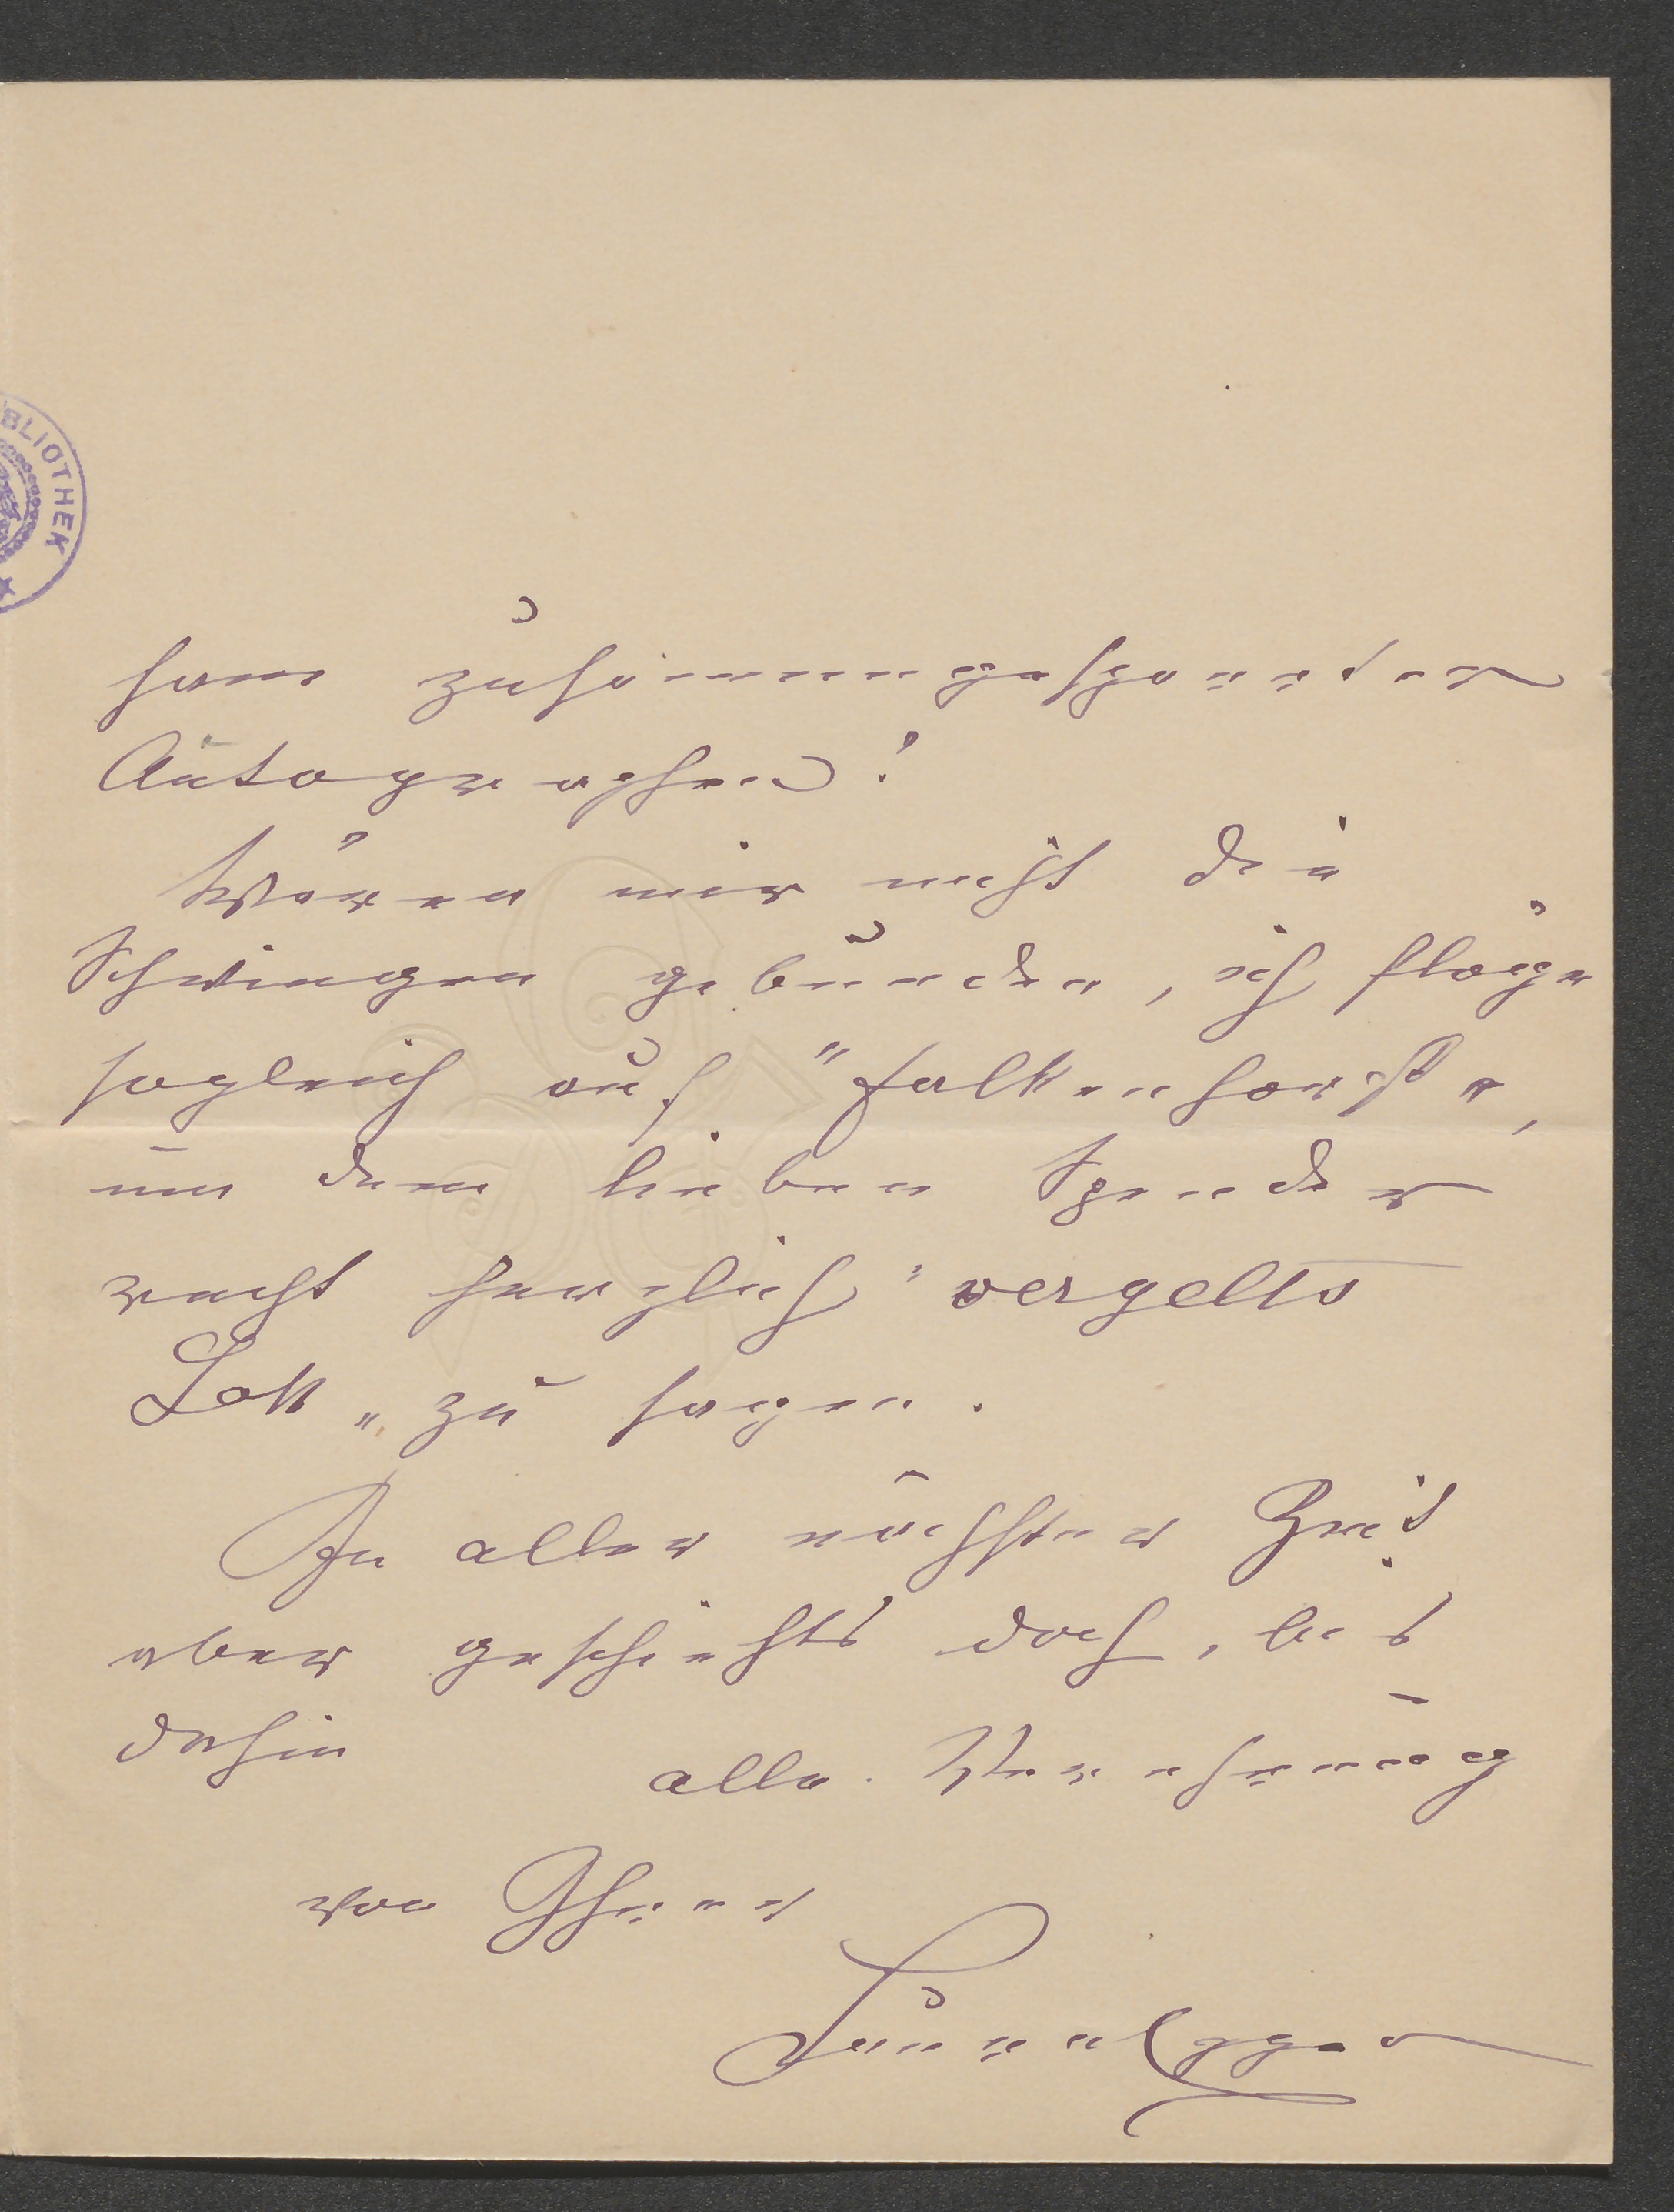 BLIOTHEK
sam zusammengesparten
Autographen!
Wären mir nicht die
Schwingen gebunden, ich flöge
sogleich auf "Falkenhorst",
um dem lieben Spender
recht herzlich "vergelts
Gott" zu sagen.
In aller nächster Zeit
aber geschiehts doch, bis
dahin
alle Verehrung
von Ihrer